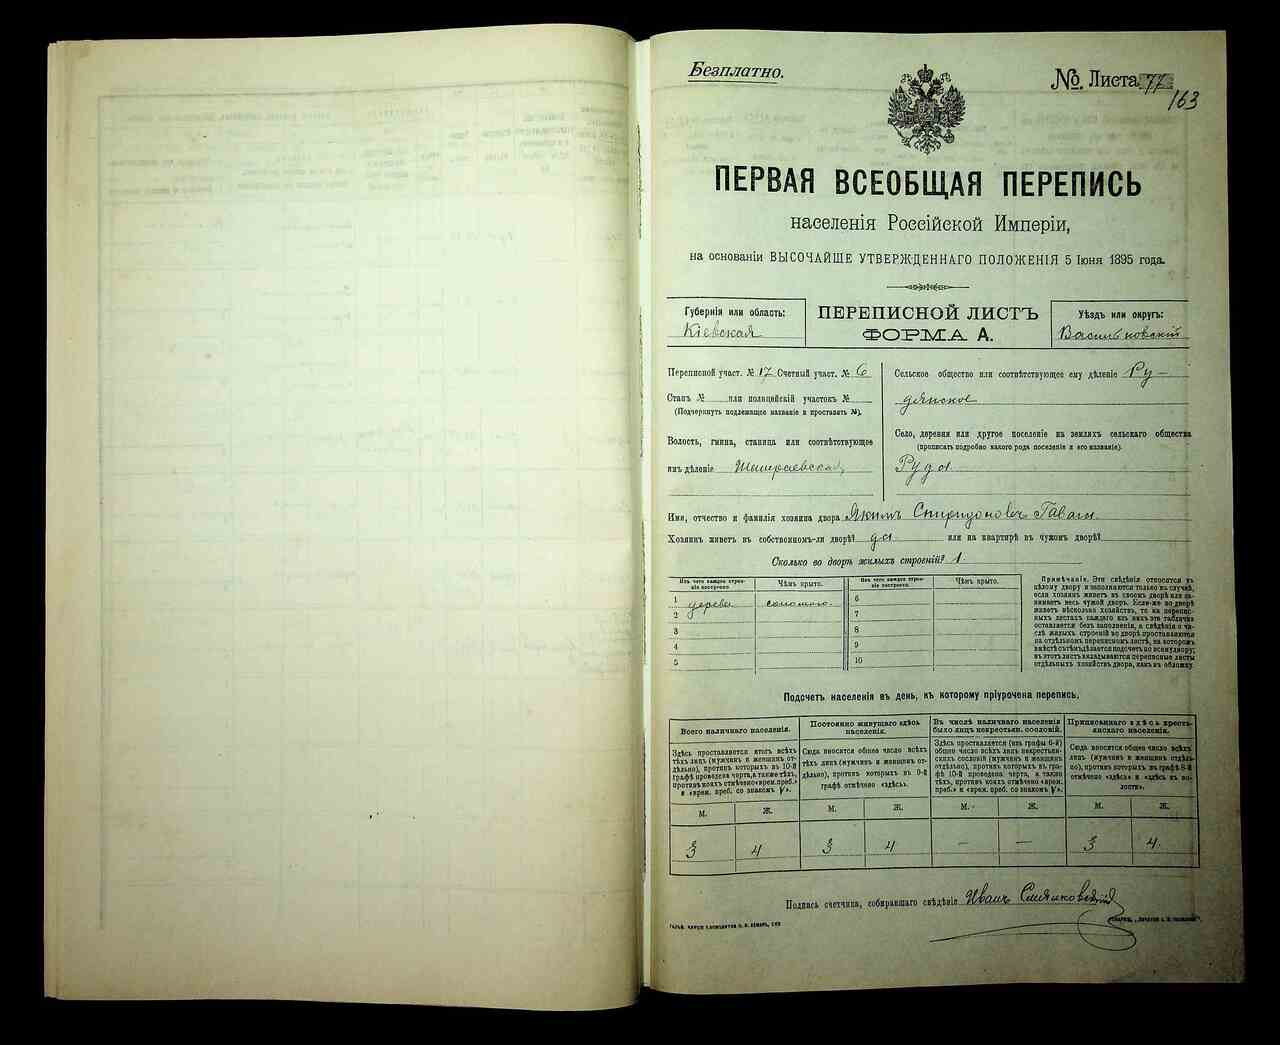 Безплатно.
№ Листа 77
163
ПЕРВАЯ ВСЕОБЩАЯ ПЕРЕПИСЬ
населенія Россійской Имперіи,
на основаніи ВЫСОЧАЙШЕ УТВЕРЖДЕННАГО ПОЛОЖЕНІЯ 5 Іюня 1895 года.
Губернія или область:
Кіевская
ПЕРЕПИСНОЙ ЛИСТЪ
ФОРМА А.
Уѣздъ или округъ:
Васильковскій
Переписной участ. № 17 Счетный участ. № 6
Станъ № или полицейскій участокъ №
(Подчеркнуть подлежащее названіе и проставить №).
Волость, гмина, станица или соотвѣтствующее
имъ дѣленіе
Сельское общество или соотвѣтствующее ему дѣленіе Ру-
дянское
Село, деревня или другое поселеніе на земляхъ сельскаго общества
(прописать подробно какого рода поселеніе и его названіе).
Руда
Имя, отчество и фамилія хозяина двора Якимъ Спиридоновъ
Хозяинъ живетъ въ собственномъ-ли дворѣ? да или на квартирѣ въ чужомъ дворѣ?
Сколько во дворѣ жилыхъ строеній? 1
Изъ чего каждое строеніе построено.
Чѣмъ крыто.
Изъ чего каждое строеніе построено.
Чѣмъ крыто.
1 дерева соломою 6
2 7
3 8
4 9
5 10
Примѣчаніе. Эти свѣдѣнія относятся къ
цѣлому двору и заполняются только въ случаѣ,
если хозяинъ живетъ въ своемъ дворѣ или за-
нимаетъ весь чужой дворъ. Если-же во дворѣ
живетъ нѣсколько хозяйствъ, то на перепис-
ныхъ листахъ каждаго изъ нихъ эта табличка
оставляется безъ заполненія, а свѣдѣнія о чи-
слѣ жилыхъ строеній во дворѣ проставляются
на отдѣльномъ переписномъ листѣ, на которомъ
вмѣстѣ съ тѣмъ дѣлается подсчетъ по всему двору;
въ этотъ листъ вкладываются переписные листы
отдѣльныхъ хозяйствъ двора, какъ въ обложку.
Подсчетъ населенія въ день, къ которому пріурочена перепись.
Всего наличнаго населенія.
Здѣсь проставляется итогъ всѣхъ
тѣхъ лицъ (мужчинъ и женщинъ от-
дѣльно), противъ которыхъ въ 10-й
графѣ проведена черта, а также тѣхъ,
противъ коихъ отмѣчено «врем. преб.»
и «врем. преб. со знакомъ V».
Постоянно живущаго здѣсь
населенія.
Сюда вносится общее число всѣхъ
тѣхъ лицъ (мужчинъ и женщинъ от-
дѣльно), противъ которыхъ въ 9-й
графѣ отмѣчено «здѣсь».
Въ числѣ наличнаго населенія
было лицъ некрестьян. сословій.
Здѣсь проставляется (изъ графы 6-й)
общее число всѣхъ лицъ некрестьян-
скихъ сословій (мужчинъ и женщинъ
отдѣльно), противъ которыхъ въ гра-
фѣ 10-й проведена черта, а также
тѣхъ, противъ коихъ отмѣчено «врем.
преб.» и «врем. преб. со знакомъ V».
Приписаннаго здѣсь кресть-
янскаго населенія.
Сюда вносится общее число всѣхъ
лицъ (мужчинъ и женщинъ отдѣль-
но), противъ которыхъ въ графѣ 8-й
отмѣчено «здѣсь» и «здѣсь въ во-
лости».
М. Ж. М. Ж. М. Ж. М. Ж.
3 4 3 4 — — 3 4
Подпись счетчика, собиравшаго свѣдѣнія Иванъ